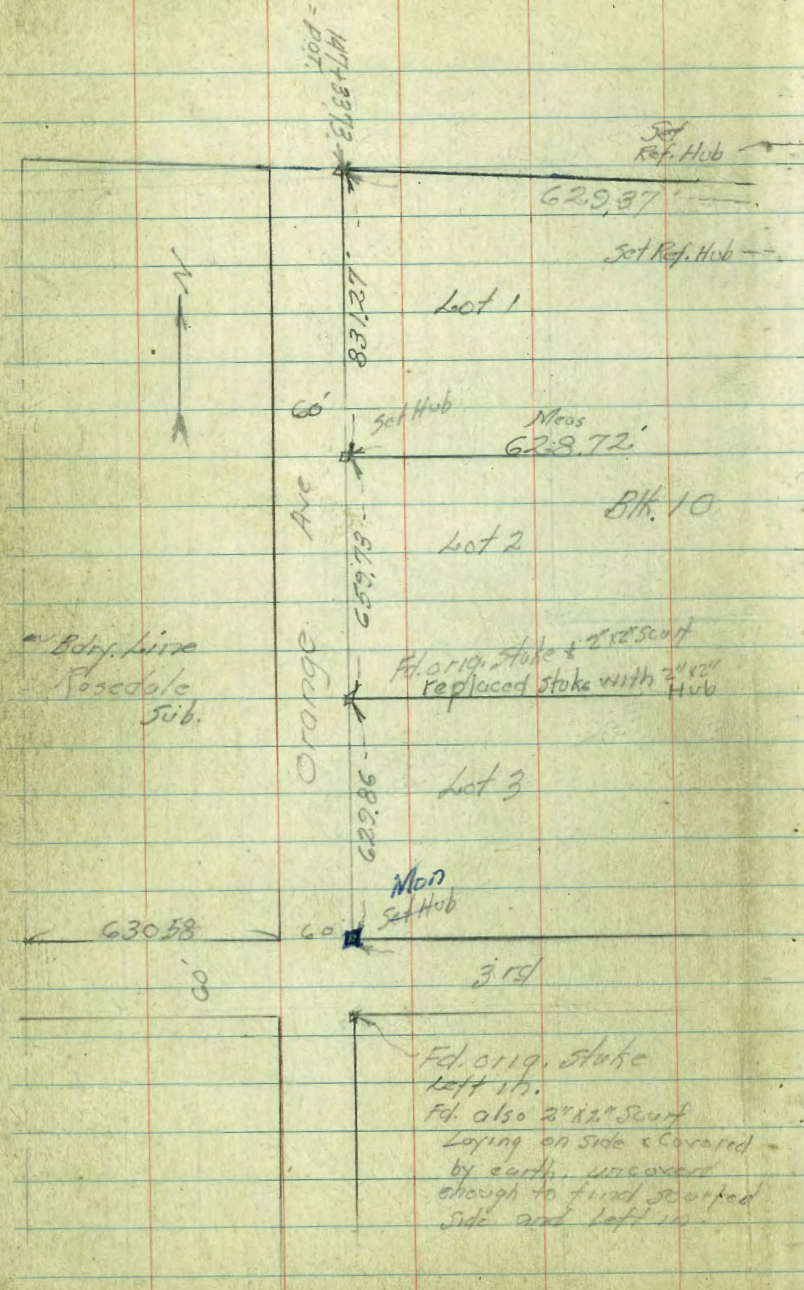 147+33.73
= P.O.T.
Set
Ref. Hub
629.37'
Set Ref. Hub
N
831.27'
Lot 1
60'
Set Hub
Meas
628.72'
Ave
Blk. 10
659.73
Lot 2
Bdry. Line
Rosedale
Sub.
Orange
Fd. orig. stake & 2"x2" scarf
replaced stake with 2"x2"
Hub
629.86
Lot 3
Mon
Set Hub
630.58
60'
60'
3rd
Fd. orig. stake
Left in.
Fd. also 2"x2" Scarf
Laying on side & Covered
by earth, uncovered
enough to find scarfed
side and Left in.